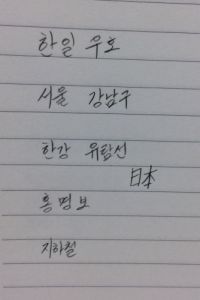 한일 우호
서울 강남구
한강 유람선
日本
홍명보
지하철